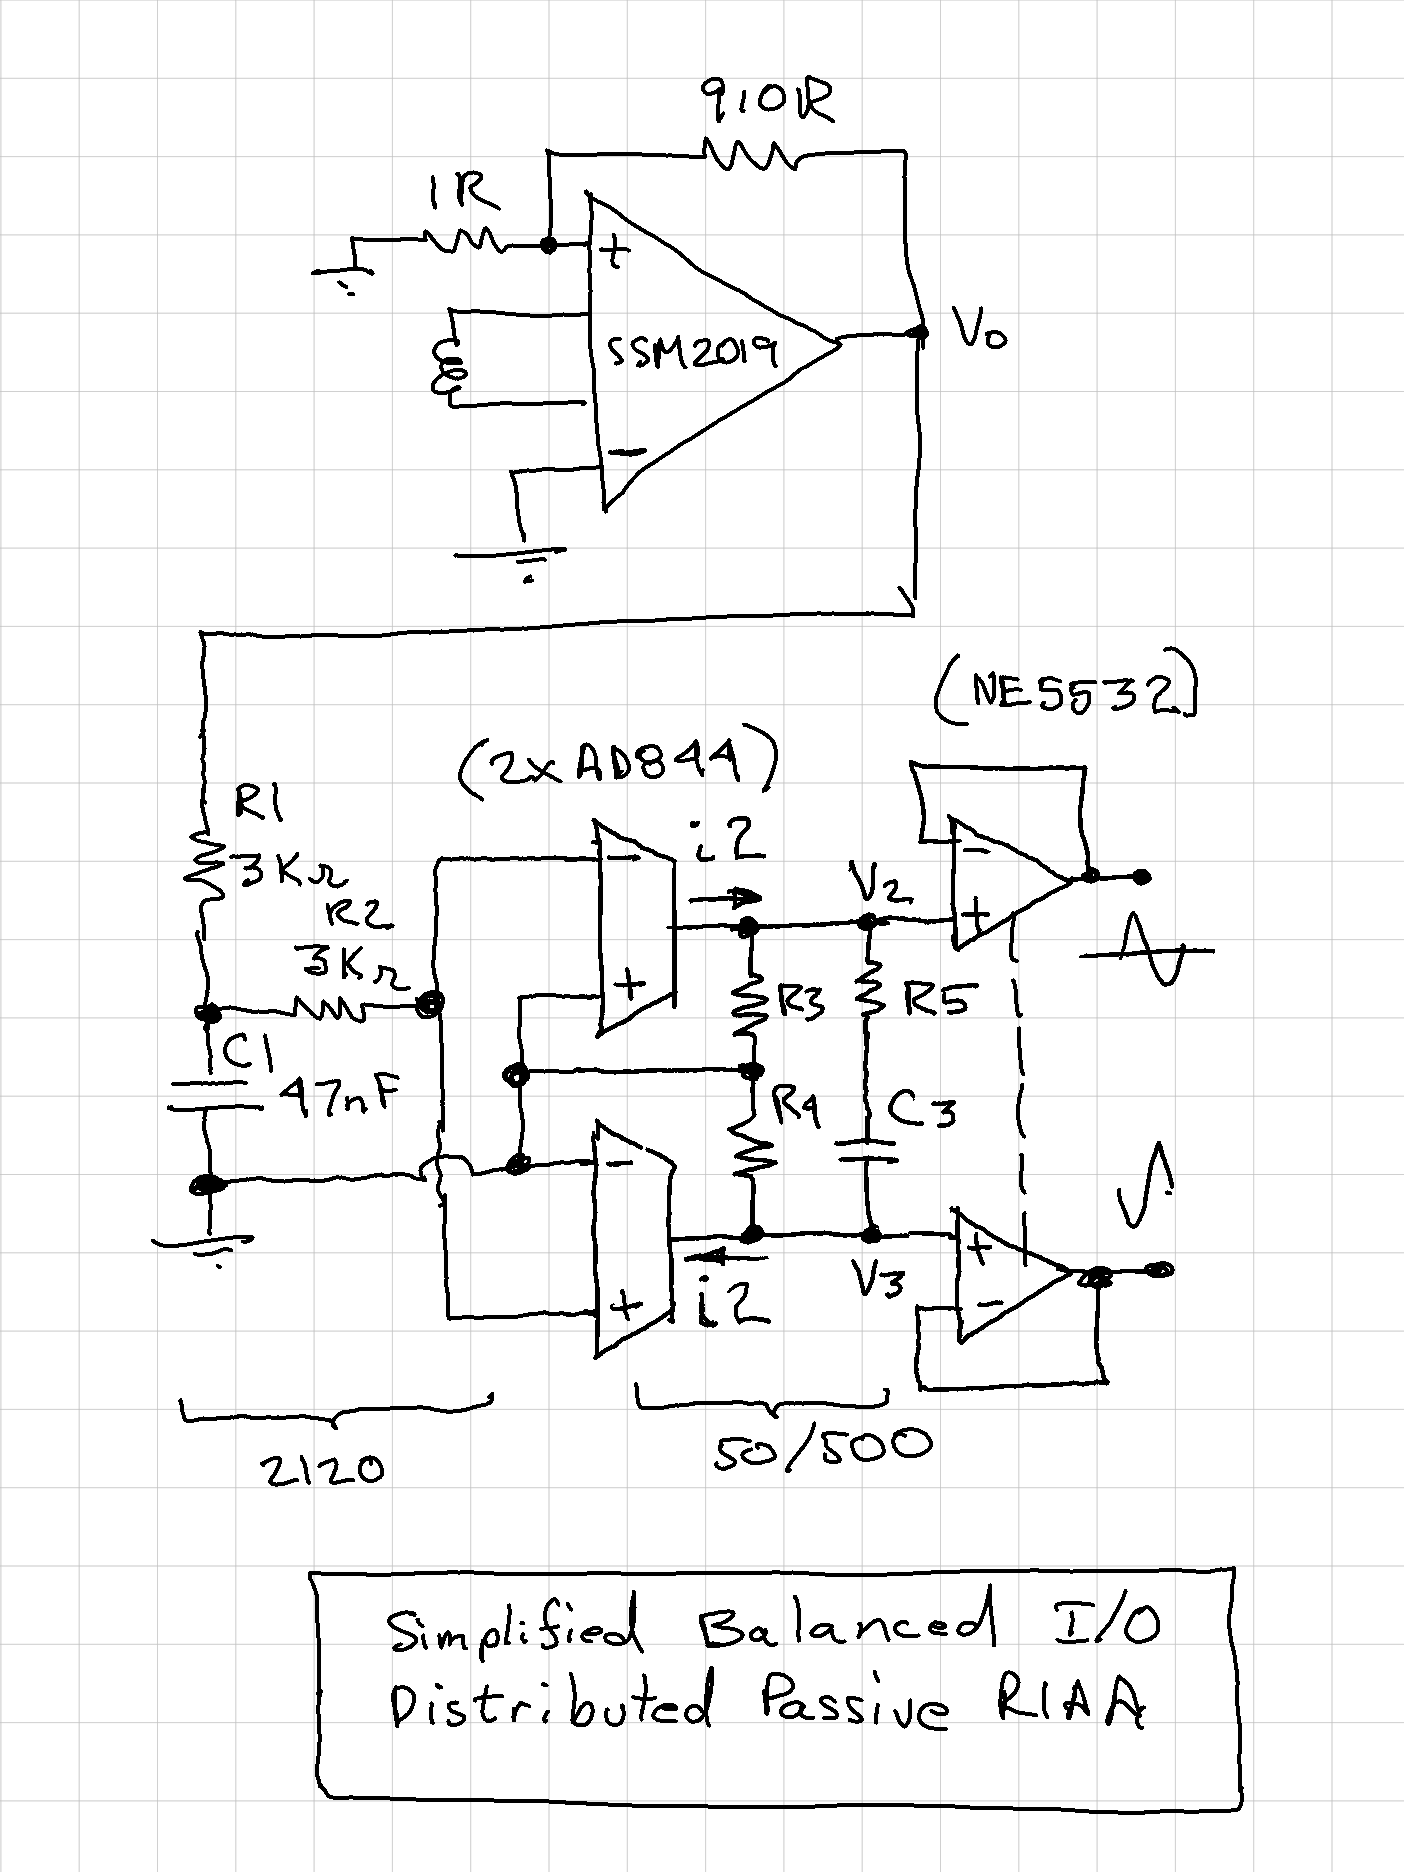 910R
1R
+
SSM2019
Vo
−
(NE5532)
(2xAD844)
R1
3KΩ
i2
V2
−
−
+
R2
3KΩ
+
R3
R5
C1
47nF
R4
C3
−
+
V3
−
+
i2
2120
50/500
Simplified Balanced I/O
Distributed Passive RIAA